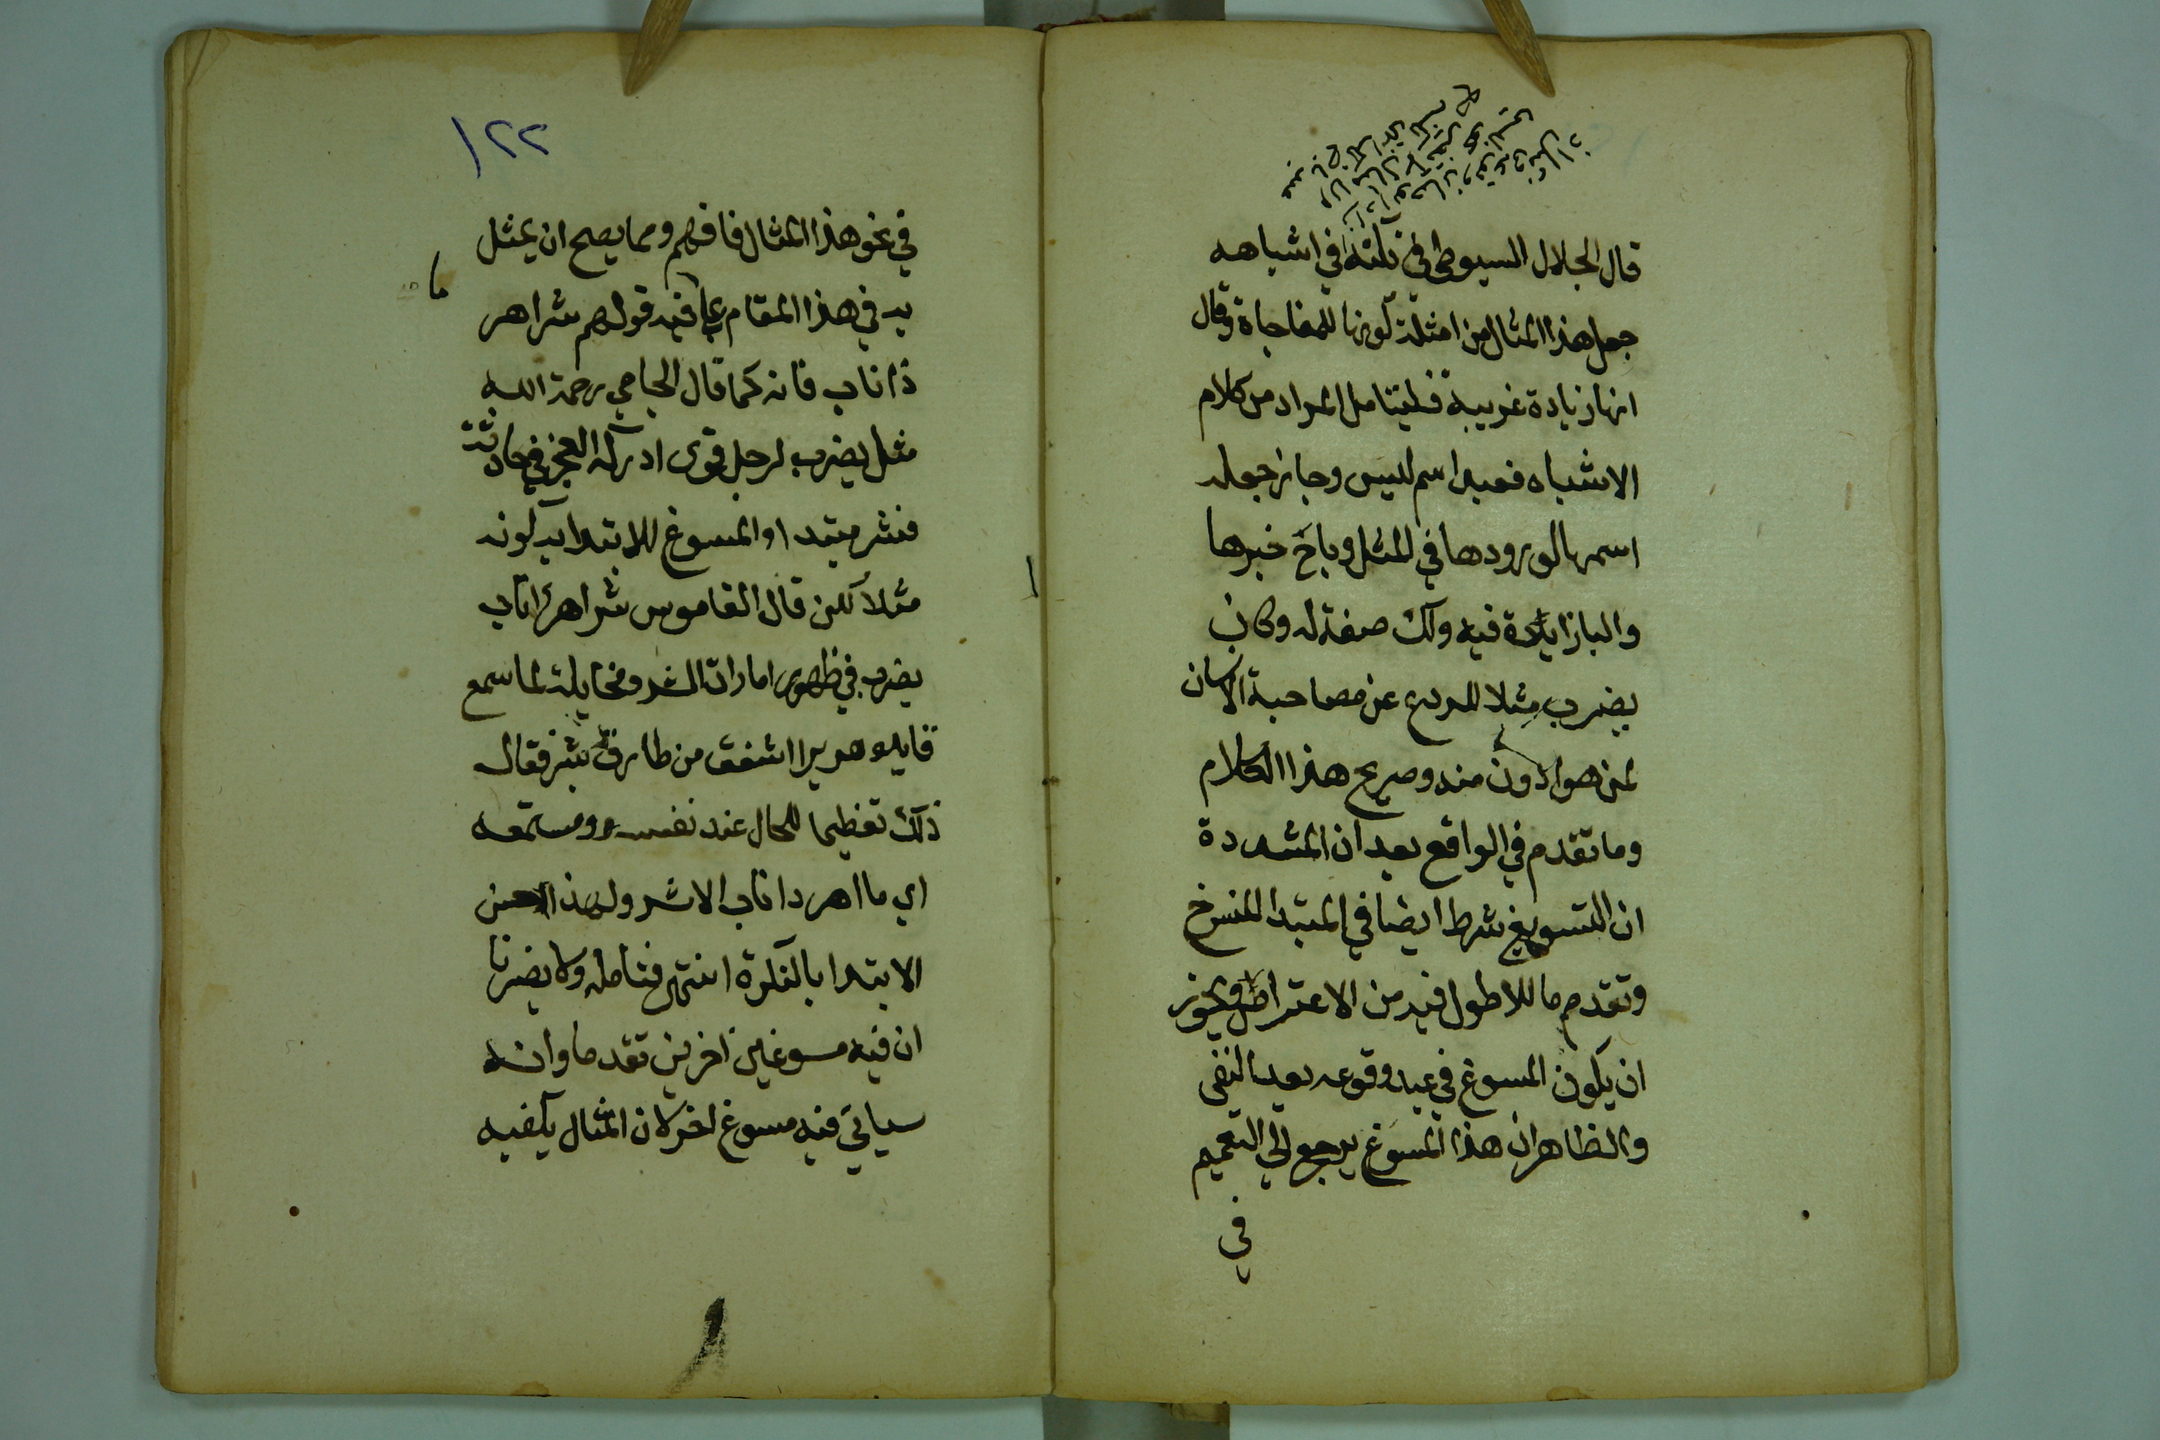 قال الجلال السيوطي في نكته في اشباهه
جعل هذا المثال من امثلة كونها للمفاجاة وقال
انها زيادة غريبة فليتامل المراد من كلام
الاشباه فعبد اسم ليس وجاز جعله
اسمها لورودها في المثل وباخ خبرها
والبا زايدة فيه ولك صفة له وكان
يضرب مثلا للردع عن مصاحبة الانسان
لمن هو ادون منه وصريح هذا الكلام
وما تقدم في الواقع بعد ان المشددة
ان التسويغ شرط ايضا في المبتدا المنسوخ
وتقدم ما للاطول فيه من الاعتراض ويجوز
ان يكون المسوغ في عبد وقوعه بعد النفي
والظاهر ان هذا المسوغ يرجع الي التعميم
في
١٢٢
في نحو هذا المثال فافهم ومما يصح ان يمثل
به في هذا المقام علي ما فيه قولهم شر اهر
ذا ناب فانه كما قال الجامي رحمة الله
مثل يضرب لرجل قوي ادركه العجز في حادثة
فشر مبتدا والمسوغ للابتدا به كونه
مثلا لكن قال القاموس شر اهر ذا ناب
يضرب في ظهور امارات الشر ومخايلة لما سمع
قايله هريرا اشفق من طارق شر فقال
ذلك تعظيما للحال عند نفسه ومستمعه
اي ما اهر ذا ناب الا شر ولهذا حسن
الابتدا بالنكرة انتهي فتامله ولا يضرنا
ان فيه مسوغين اخرين تقدما وانه
سياتي فيه مسوغ اخر لان المثال يكفيه